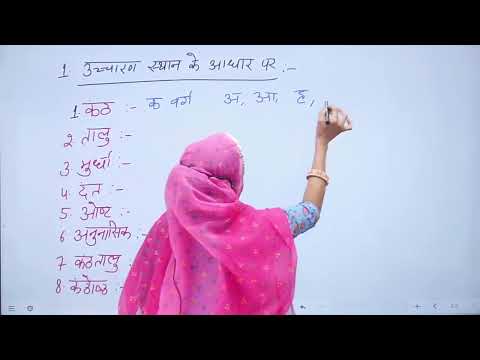 1. उच्चारण स्थान के आधार पर :-
1 कंठ :- क वर्ग अ, आ, ह,
2 तालु :-
3 मुर्धा :-
4 दंत :-
5. ओष्ट :-
6 अनुनासिक :-
7 कंठतालु :-
8. कंठोष्ठ :-